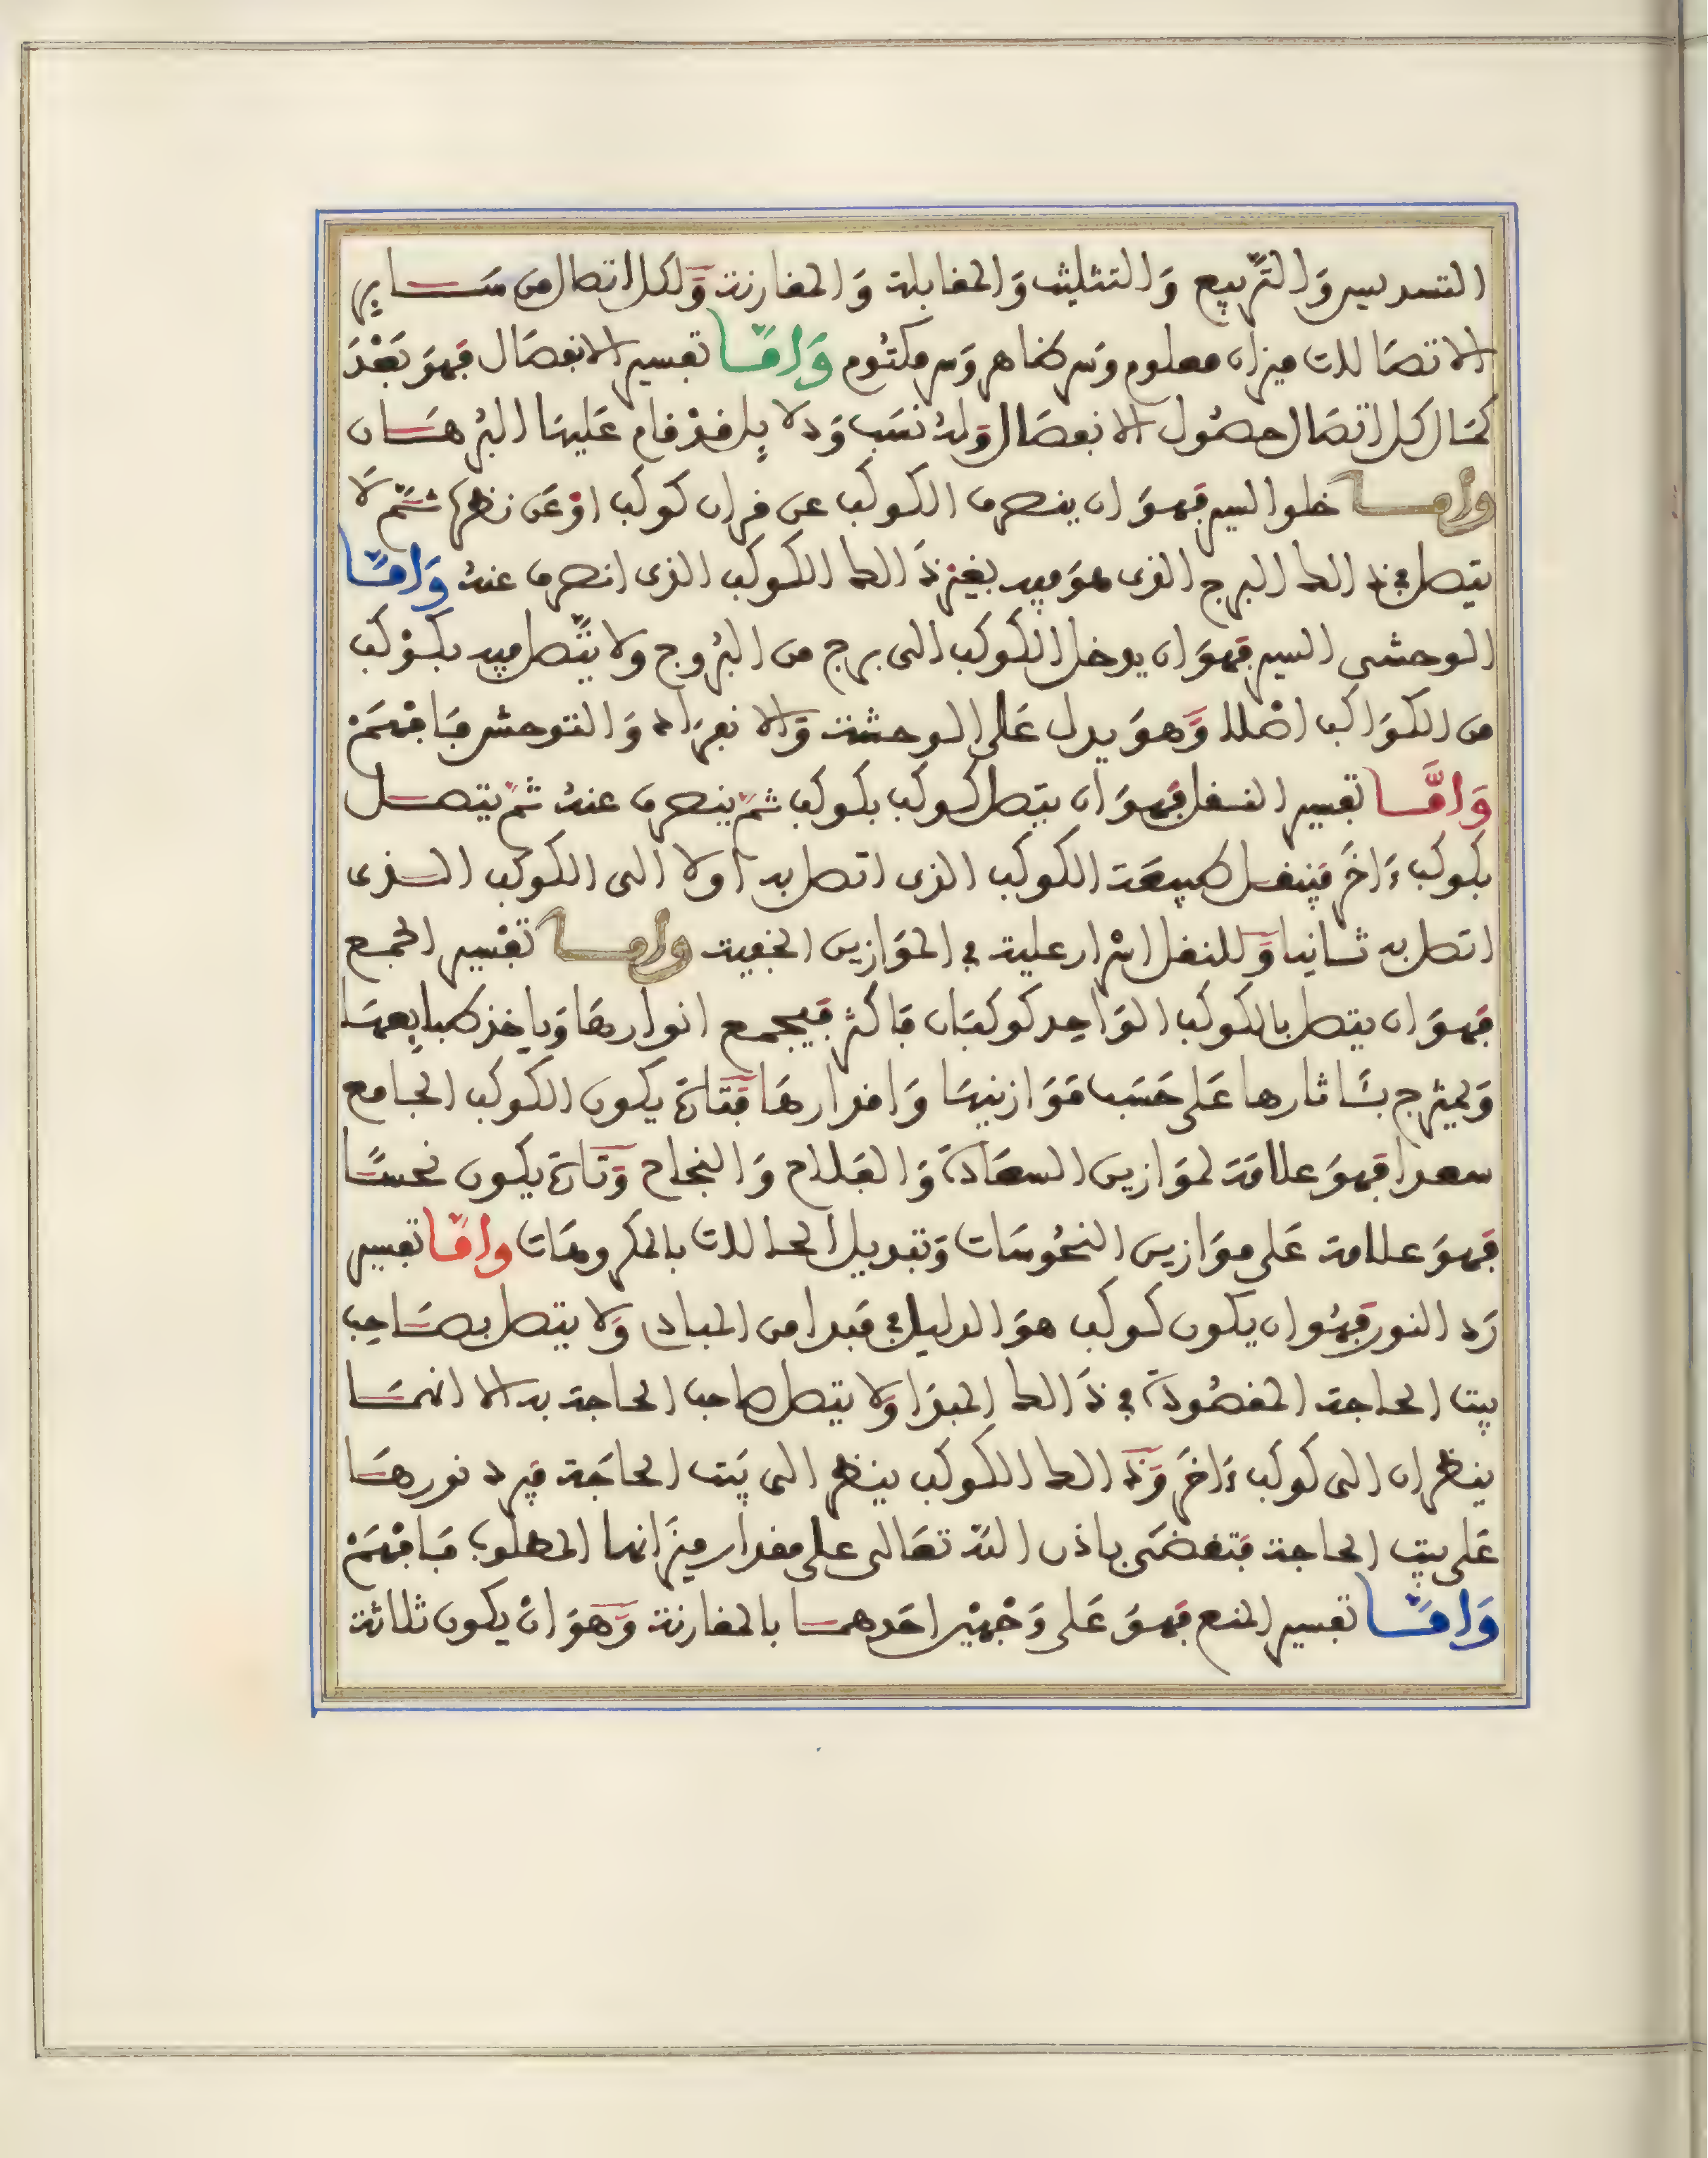 التسديس وَالتَّربيع وَالتثليث وَالمقابلة وَالمقارنة وَلكل اتصال من سَاير
الاتصَالات ميزان معلوم وَسر ظاهر وَسر مكتُوم وَامَّا تفسير الانفصَال فهوَ بَعْدَ
كمَال كل اتصَال حصُول الانفصَال وَلهُ نسَب وَدلايل قدْ قام عَليهَا البُرهَان
وامـا خلو السير فهوَ ان ينصرف الكوكب عن قران كوكب اوْ عَن نظره ثمَّ لَا
يتصل في ذالك البرج الذى هوَ فيه بغيْر ذَالك الكوكب الذى انصرف عنهُ وَامَّا
الوحشى السير فهوَ ان يدخل الكوكب الى برج من البُروج ولا يتَّصل فيه بكوْكب
من الكوَاكب اصْلا وَهوَ يدل عَلى الوحشة وَالانفرَاد وَالتوحش فَافْهَمْ
وَامَّا تفسير النقل فهوَ ان يتصل كوكب بكوكب ثمَّ ينصرف عنهُ ثمَّ يتصل
بكوكب ءَاخَر فينقل طبيعَة الكوكب الذى اتصل به اولا الى الكوكب الذى
اتصل به ثانيا وَللنقل اسْرار علية في الموَازين الخفية وامـا تفْسير الجمع
فهوَ ان يتصل بالكوكب الوَاحِد كوكبَان فَاكثر فيجمع انوارهَا وَياخذ طبايِعهَا
وَيمْتزج بئَاثارها عَلى حَسَب مَوَازنيهَا وَاقدارهَا فَتَارَة يكون الكوكب الجامع
سعدا فهوَ علامَة لموَازين السعَادَة وَالفلاح وَالنجاح وَتَارَة يكون نحسًا
فهوَ علامة عَلى موَازين النحُوسَات وَتبديل الحالات بالمكروهَات وامَّا تفسير
رَد النور فهُو ان يكون كوكب هوَ الدليل في مَبدا من المباد وَلا يتصل بصَاحِب
بيت الحاجة المقصُودَة في ذَالك المبدَا وَلا يتصل صاحب الحاجة به الا انهمَا
ينظران الى كوكب ءَاخَر وَذَالك الكوكب ينظر الى بَيت الحاجَة فيرد نورهَا
عَلى بيت الحاجة فتقضَى باذن اللَّه تعَالى على مقدار ميزَانها المطلوب فَافْهَمْ
وَامَّا تفسير المنع فهوَ عَلى وَجْهيْن احَدهما بالمقارنة وَهوَ انْ يكون ثلاثة